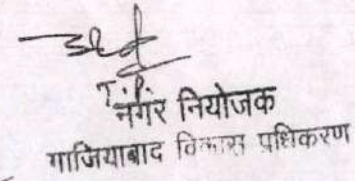 T.P.
नगर नियोजक
गाजियाबाद विकास प्राधिकरण